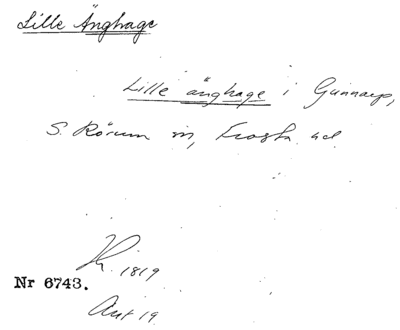 Lille Änghage
Lille änghage i Gunnarp,
S. Rörum sn, Frosta hd
1819
Nr 6743.
Akt 19